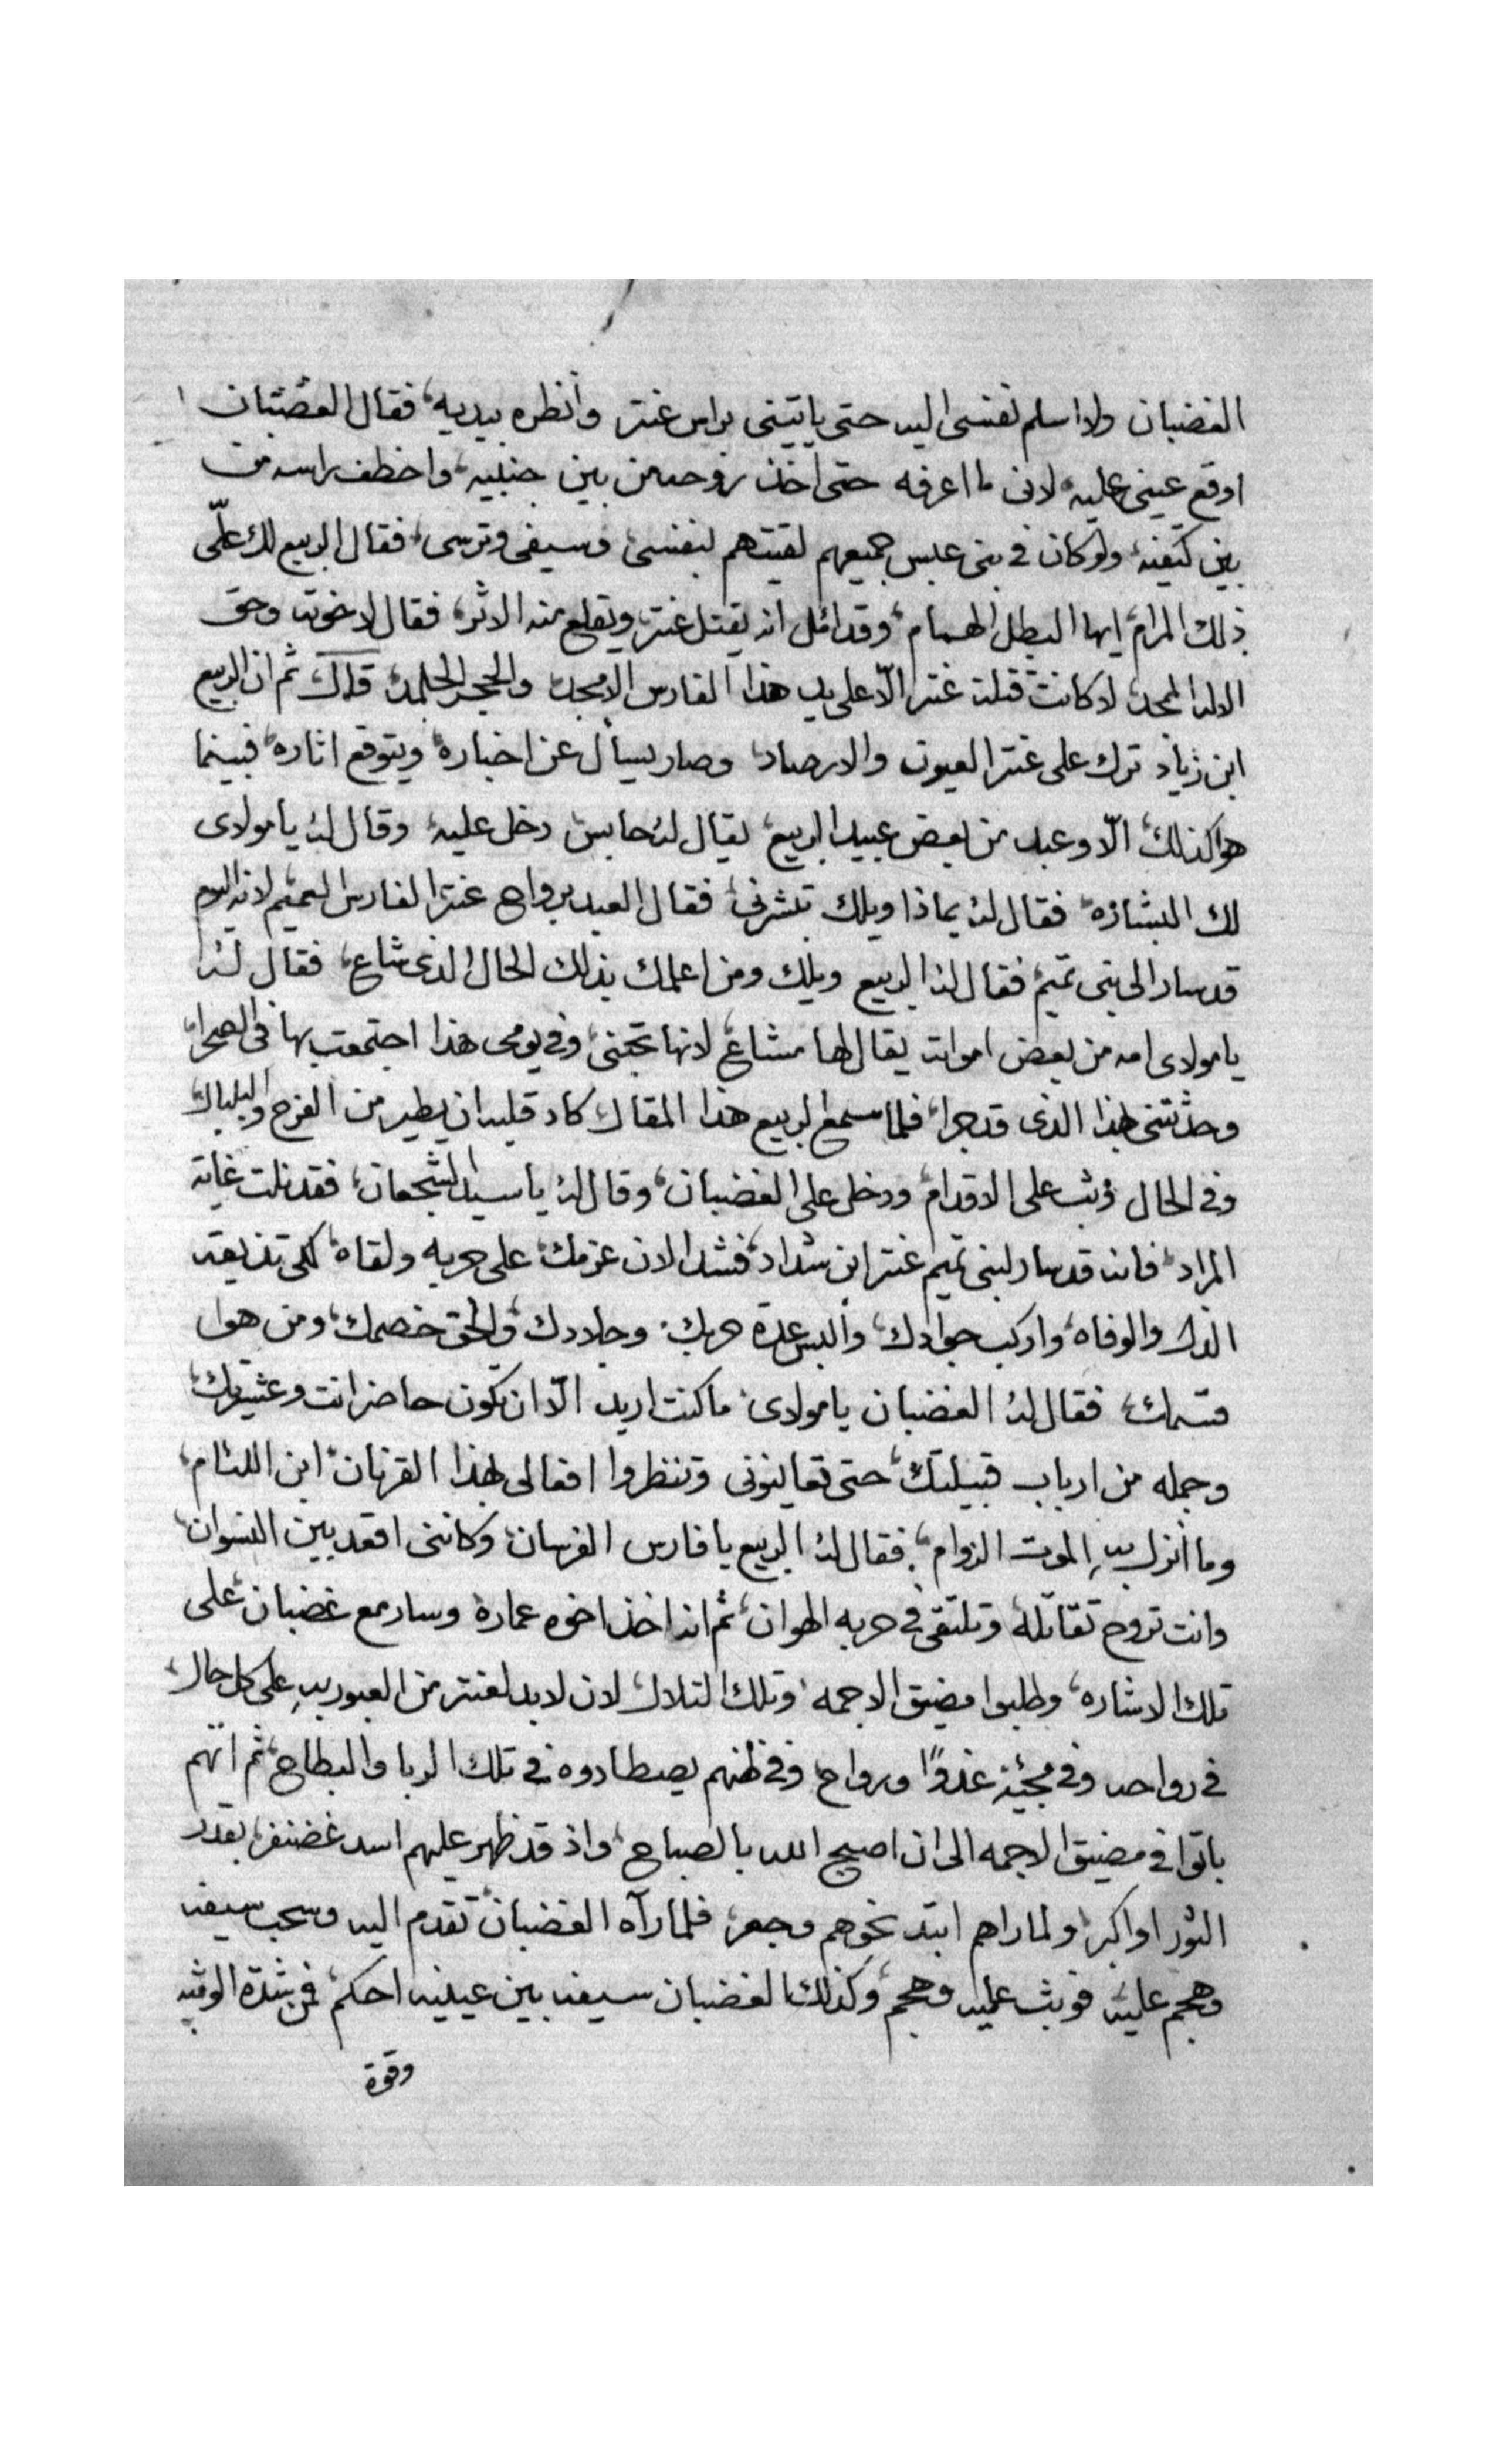 الغضبان ولا اسلم نفسى اليه حتى ياتينى براس عنتر وأنظره بيديه، فقال الغضبان
اوقع عينى عليه لانى ما اعرفه حتى اخذ روحه من بين جنبيه، واخطف راسه من
بين كتفيه، ولو كان فى بنى عبس جميعهم لقيتهم بنفسى، وسيفى وترسى، فقال الربيع لك علىّ
ذلك المرام، ايها البطل الهمام، وقد امّل انه يقتل عنتر، ويقلع منه الاثر، فقال لاخوته وحق
الاله الممجد، لا كانت قتلت عنتر الّا على يد هذا الفارس الامجد، والحجر الجلمد، قال ثم ان الربيع
ابن زياد ترك على عنتر العيون والارصاد، وصار يسأل عن اخباره ويتوقع اثاره، فبينما
هوا كذلك، الّا وعبد من بعض عبيد الربيع، يقال له حابس، دخل عليه، وقال له يا مولاى
لك البشاره، فقال له بماذا ويلك تبشرنى، فقال العبد برواح عنتر الفارس العميم لانه اليوم
قد سار الى بنى تميم، فقال له الربيع ويلك ومن اعلمك بذلك الحال الذى شاع، فقال له
يا مولاى امه من بعض اموات يقال لها مشاع، لانها تحبنى، وفى يومى هذا اجتمعت بها فى الصحرا،
وحدثتنى بهذا الذى قد جرا، فلما سمع الربيع هذا المقال كاد قلبه ان يطير من الفرح والبلبال،
وفى الحال وثب على الاقدام، ودخل على الغضبان، وقال له يا سيد الشجعان، فقد نلت غاية
المراد، فانه قد سار لبنى تميم عنتر ابن شداد، فشد الان عزمك، على حربه ولقاه، لكى تذيقه
الذل والوفاه، واركب جوادك، والبس عدة حربك، وجلادك، والحق خصمك، ومن هوا
قسمك، فقال له الغضبان يا مولاى، ما كنت اريد الّا ان تكون حاضر انت وعشيرتك،
وجمله من ارباب قبيلتك، حتى تعاينونى وتنظروا افعالى بهذا القرنان، ابن اللئام،
وما أنزل بهِ الموت الزوام، فقال له الربيع يا فارس الفرسان، وكاننى اقعد بين النسوان،
وانت تروح تقاتله وتلتقى فى حربه الهوان، ثم انه اخذ اخوه عماره وسار مع غضبان على
تلك الاشاره، وطلبوا مضيق الاجمه، وتلك التلال، لان لا بد لعنتر من العبور بهِ على كل حال،
فى رواحه وفى مجيئه غدوًا ورواح، وفى ظنهم يصطادوه فى تلك الربا والبطاح، ثم انّهم
باتوا فى مضيق الاجمه الى ان اصبح الله بالصباح، واذ قد ظهر عليهم اسد غضنفر، بقدر
الثور او اكبر، ولما راهم ابتد نحوهم وجعر، فلما رآه الغضبان تقدم اليه وسحب سيفه
وهجم عليه، فوثب عليه وهجم، وكذلك الغضبان سيفه بين عينيه احكم، فمن شدة الوثبه
وقوة